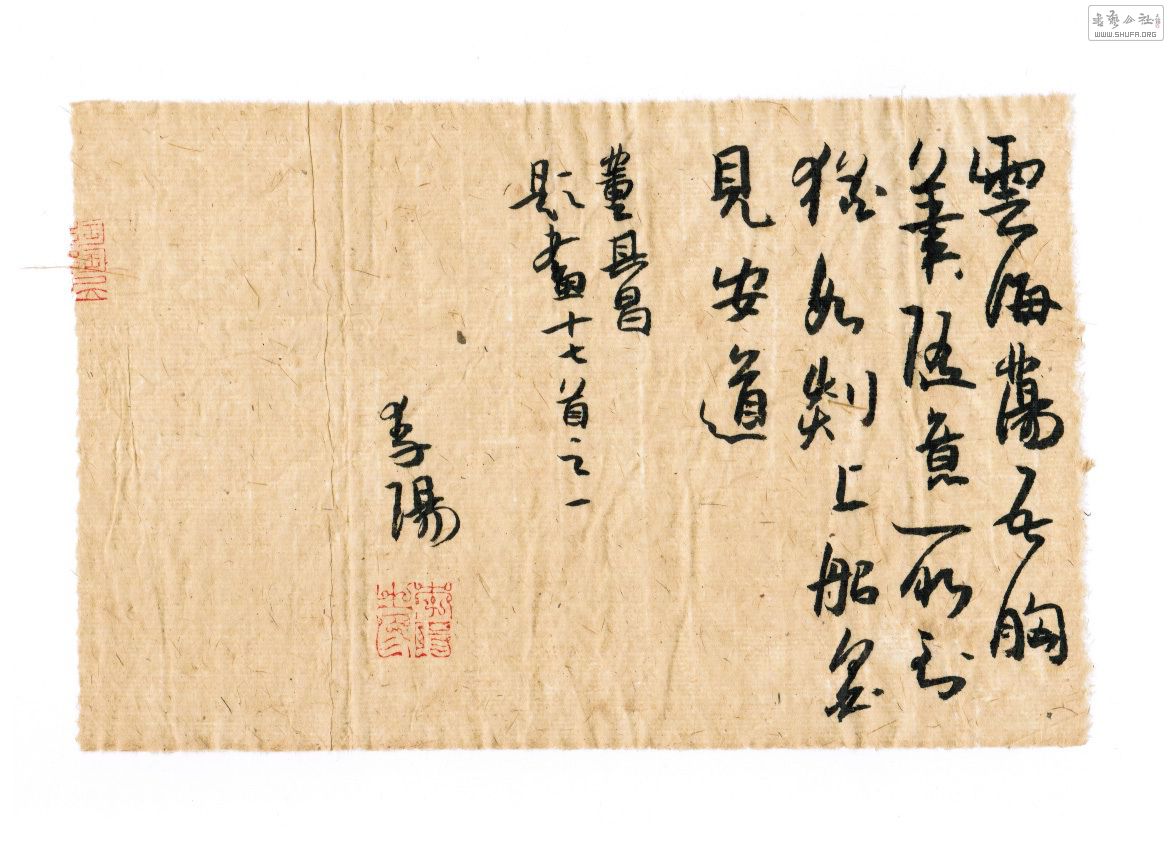 雲海蕩吾胸
筆隨意所到
猶如剡上船
見安道
董其昌
題畫十七首之一
李陽
書藝公社
WWW.SHUFA.ORG